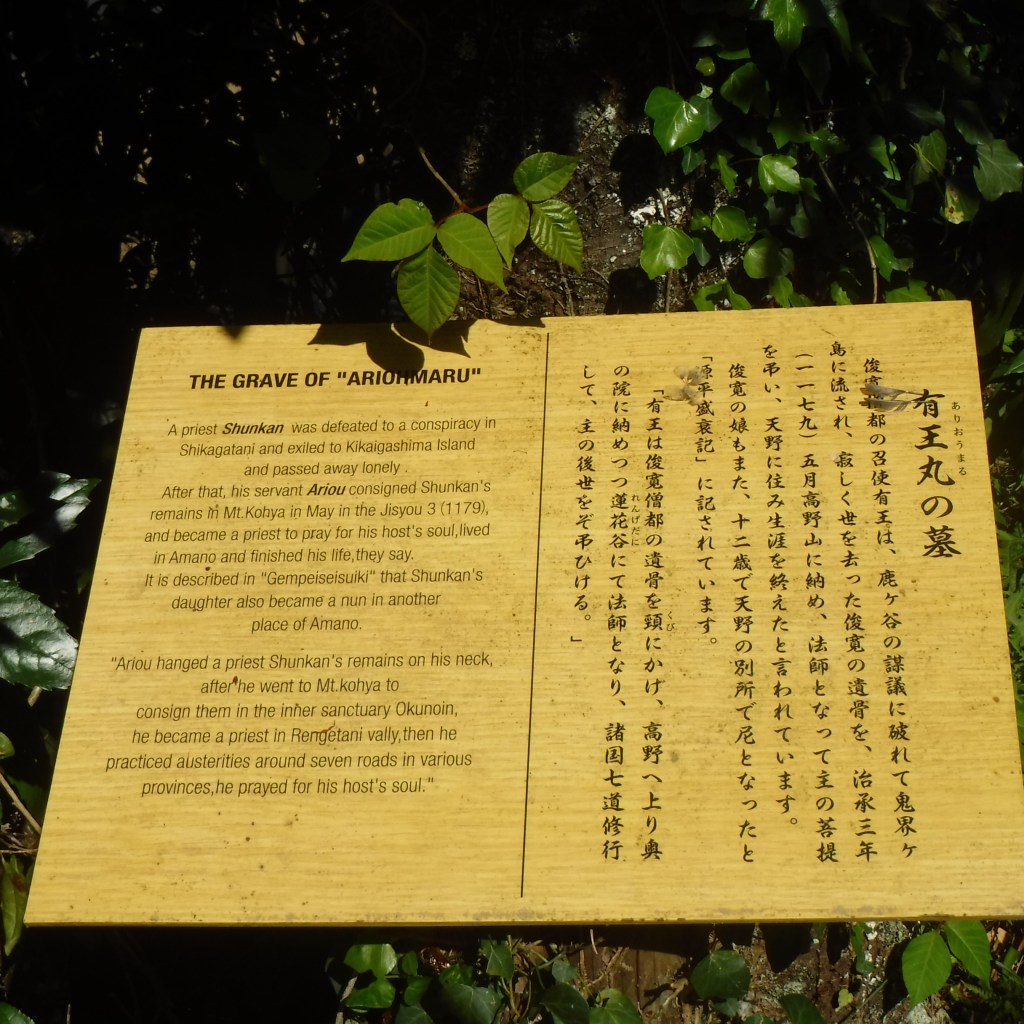 THE GRAVE OF "ARIOHMARU"
A priest Shunkan was defeated to a conspiracy in
Shikagatani and exiled to Kikaigashima Island
and passed away lonely .
After that, his servant Ariou consigned Shunkan's
remains in Mt.Kohya in May in the Jisyou 3 (1179),
and became a priest to pray for his host's soul,lived
in Amano and finished his life,they say.
It is described in "Gempeiseisuiki" that Shunkan's
daughter also became a nun in another
place of Amano.
"Ariou hanged a priest Shunkan's remains on his neck,
after he went to Mt.kohya to
consign them in the inner sanctuary Okunoin,
he became a priest in Rengetani vally,then he
practiced austerities around seven roads in various
provinces,he prayed for his host's soul."
有王丸の墓
ありおうまる
俊寛都の召使有王は、鹿ヶ谷の謀議に破れて鬼界ヶ
島に流され、寂しく世を去った俊寛の遺骨を、治承三年
(一一七九)五月高野山に納め、法師となって主の菩提
を弔い、天野に住み生涯を終えたと言われています。
俊寛の娘もまた、十二歳で天野の別所で尼となったと
「源平盛衰記」に記されています。
「有王は俊寛僧都の遺骨を頸にかけ、高野へ上り奥
くび
の院に納めつつ蓮花谷にて法師となり、諸国七道修行
れんげだに
して、主の後世をぞ弔ひける。」